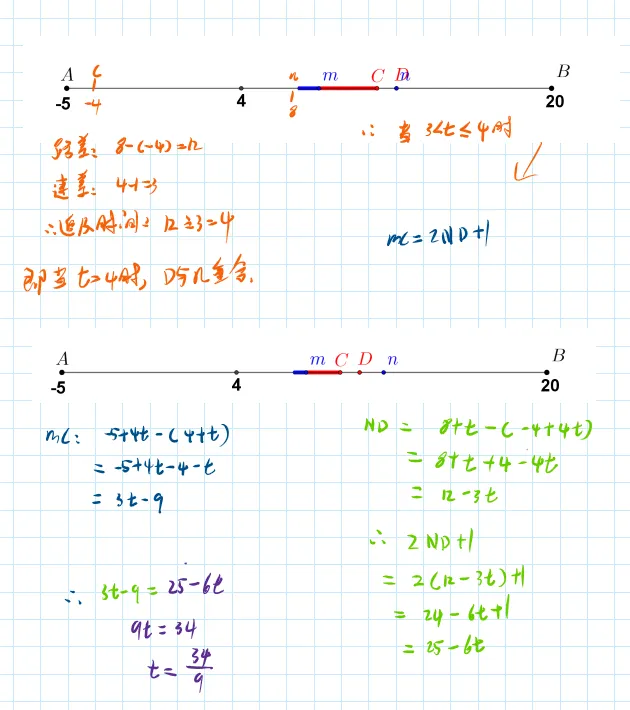 A C n m C D n B
-5 -4 4 8 20
路差: 8-(-4)=12
速差: 4-1=3
∴追及时间: 12÷3=4
即当t=4时, D与n重合.
∴ 当 3<t≤4时
mC=2ND+1
A m C D n B
-5 4 20
mC: -5+4t-(4+t)
= -5+4t-4-t
= 3t-9
∴ 3t-9=25-6t
9t=34
t=34/9
ND = 8+t-(-4+4t)
= 8+t+4-4t
= 12-3t
∴ 2ND+1
= 2(12-3t)+1
= 24-6t+1
= 25-6t